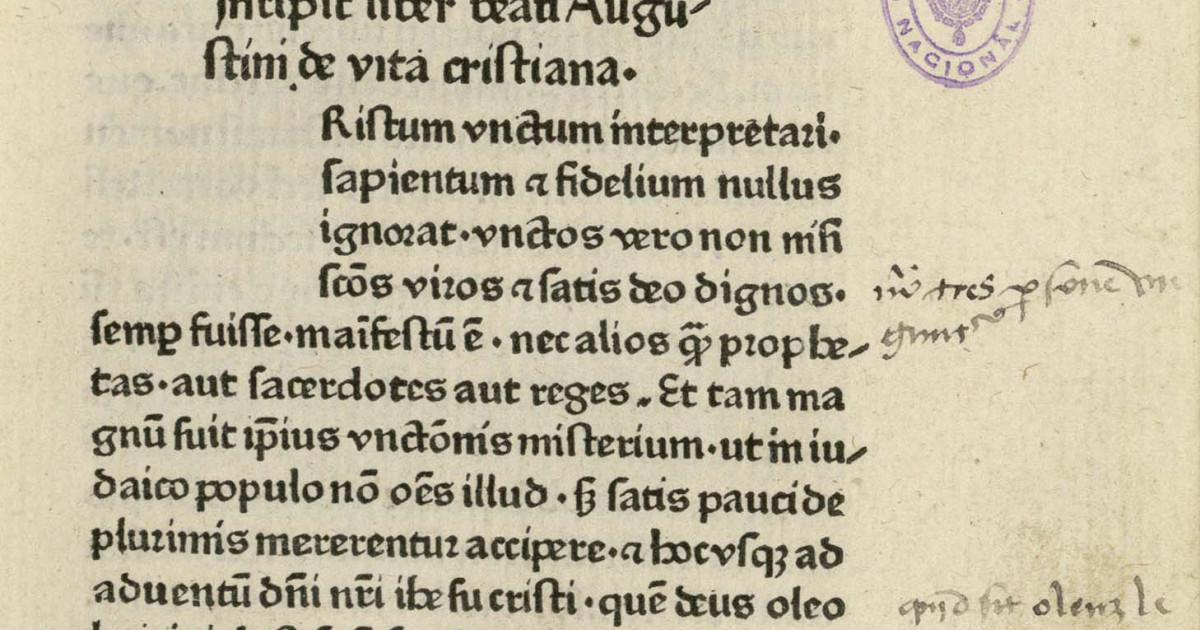 Incipit liber beati Augu-
stini de vita cristiana.
NACIONAL
Ristum vnctum interpretari.
sapientum ⁊ fidelium nullus
ignorat. vnctos vero non nisi
scōs viros ⁊ satis deo dignos.
semꝑ fuisse. maīfestū ē. nec alios q̄ꝫ prophe-
tas. aut sacerdotes aut reges. Et tam ma
gnū fuit ip̄ius vnctōnis misterium. ut in iu-
daico populo nō oēs illud. sꝫ satis pauci de
plurimis mererentur accipere. ⁊ hoc vsqꝫ ad
aduentū dñi nr̄i ihesu cristi. quē deus oleo
tres ꝑsone vn
gunt
quid sit oleuꝫ le